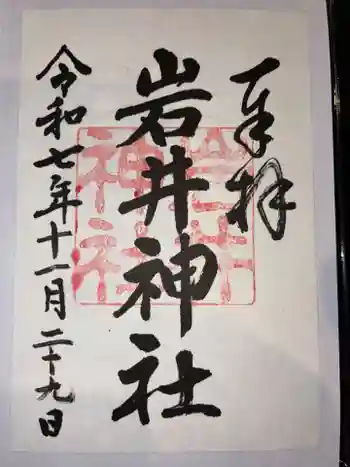 奉拝
岩井神社
令和七年十一月二十九日
岩井
神社